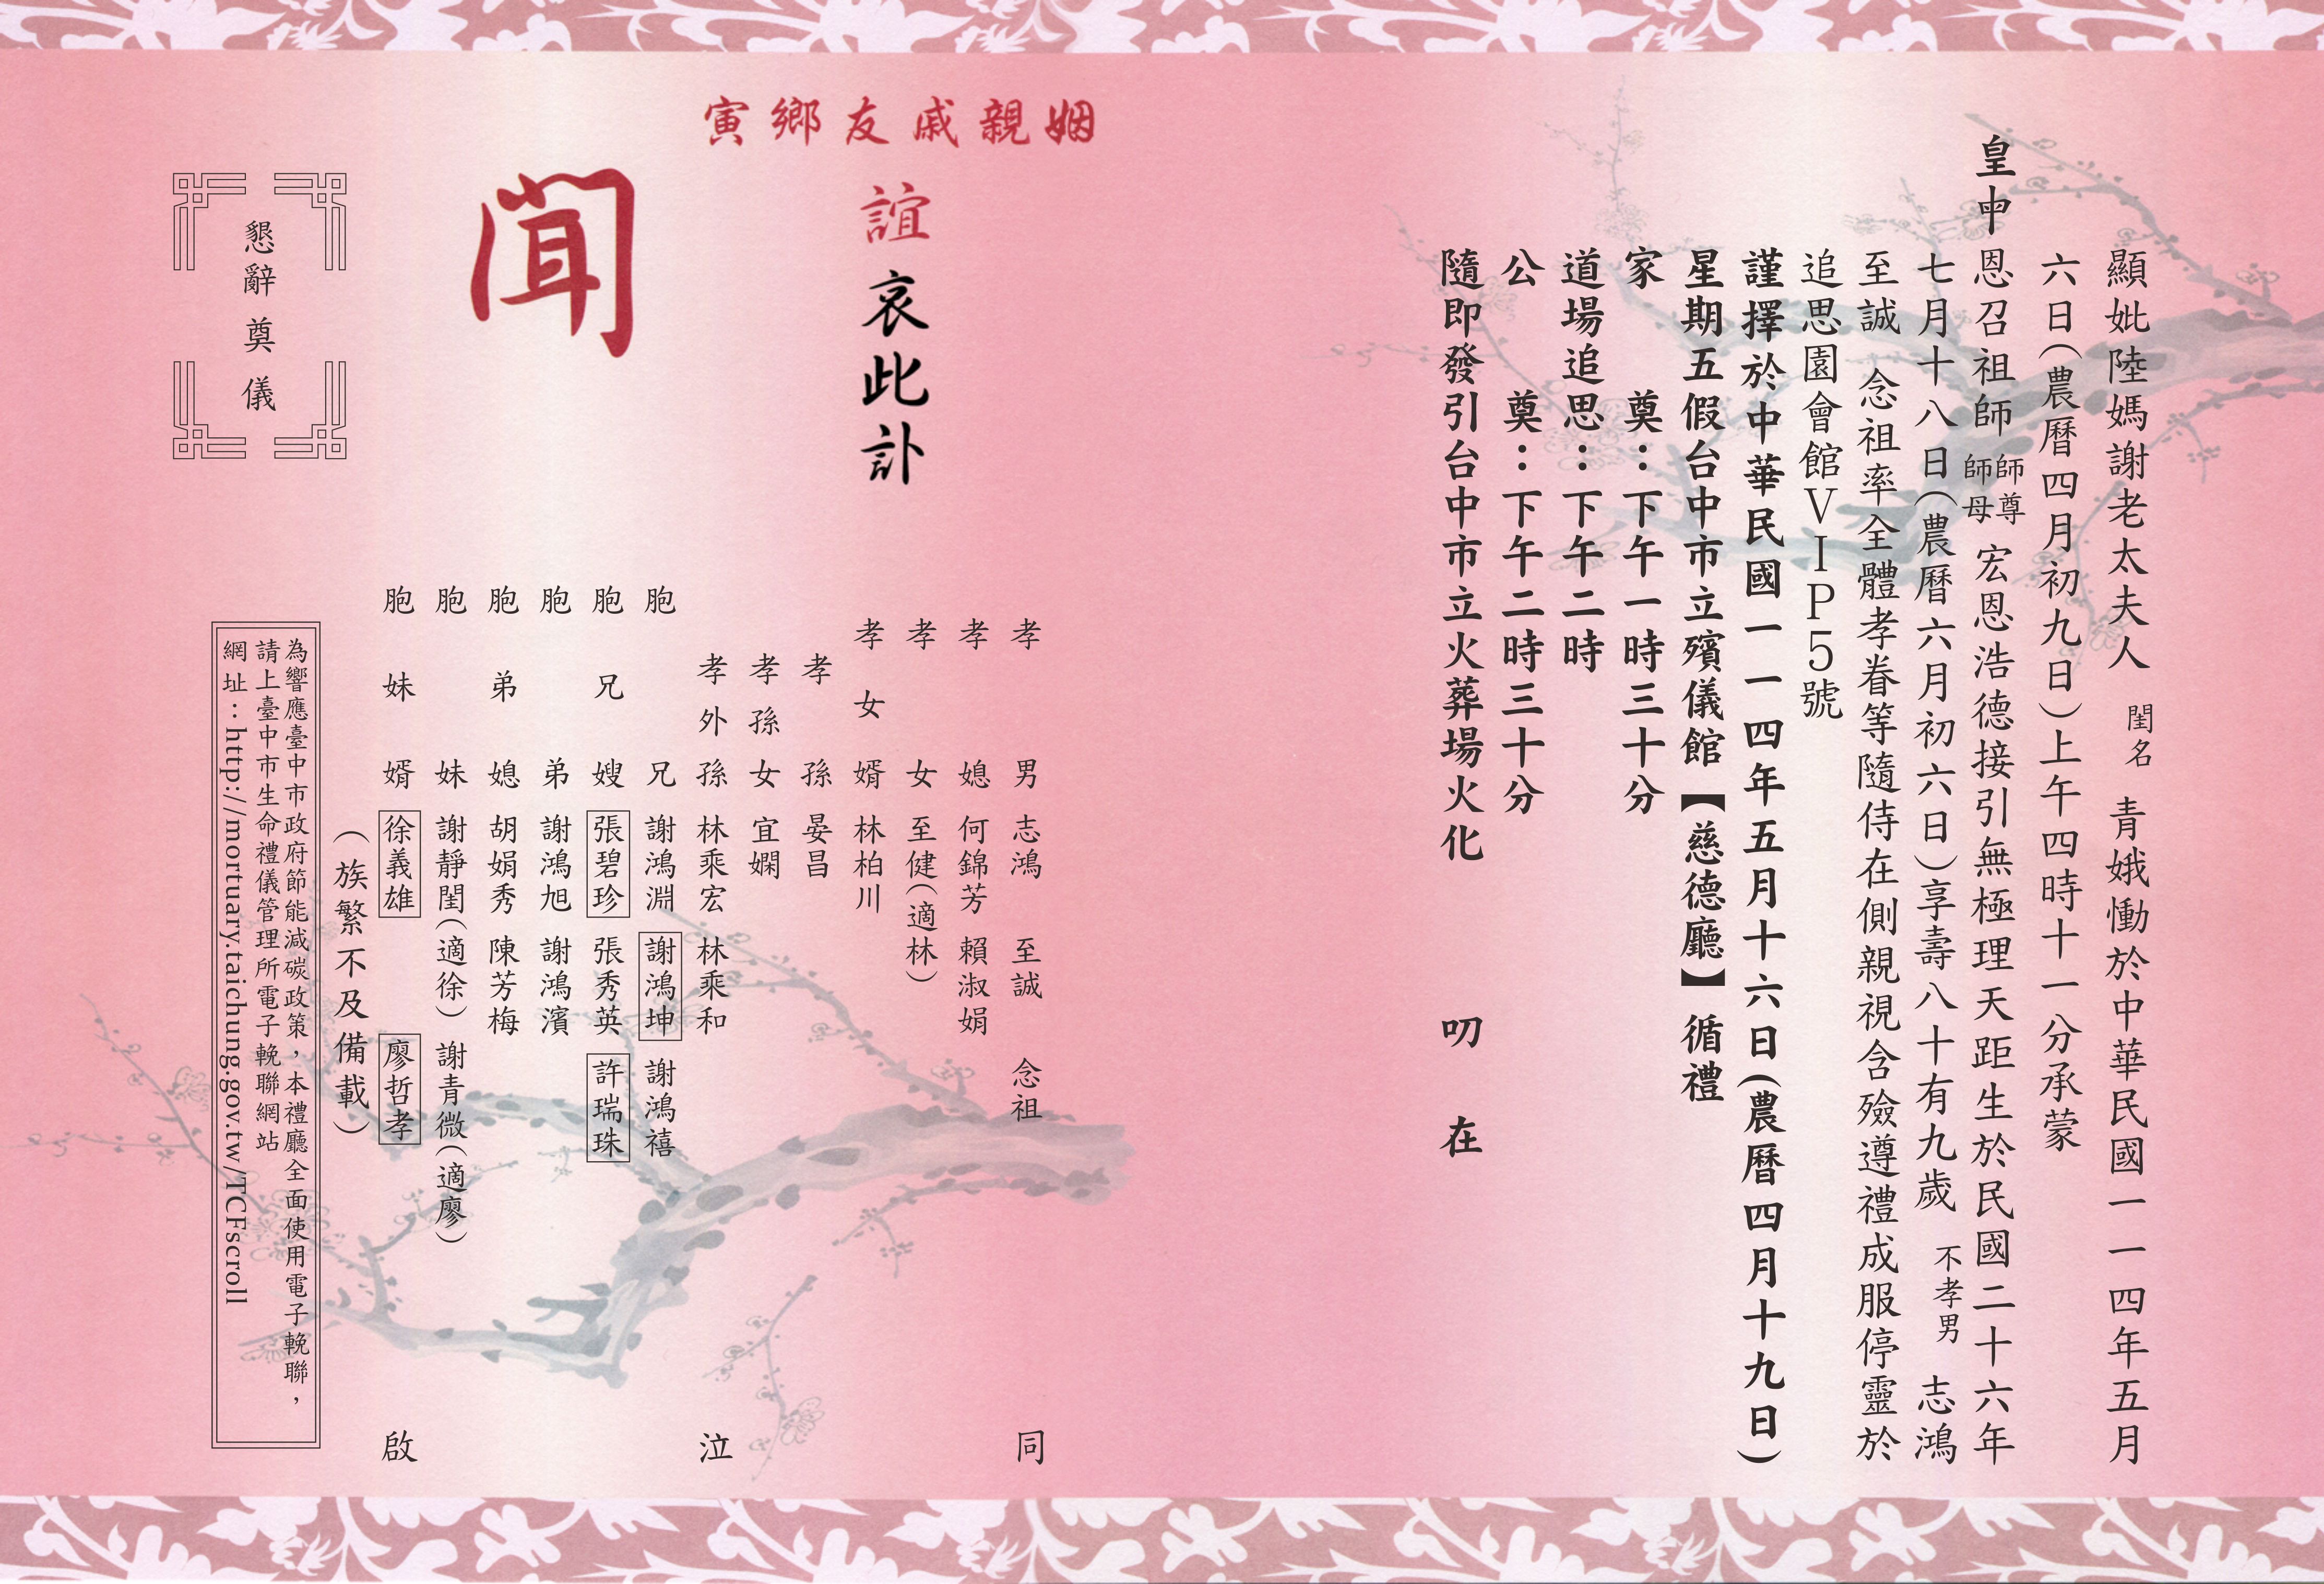 顯妣陸媽謝老太夫人 閨名 青娥慟於中華民國一一四年五月
六日(農曆四月初九日)上午四時十一分承蒙
皇𢆶恩召祖師 師尊師母 宏恩浩德接引無極理天距生於民國二十六年
七月十八日(農曆六月初六日)享壽八十有九歲 不孝男 志鴻
至誠 念祖率全體孝眷等隨侍在側親視含殮遵禮成服停靈於
追思園會館VIP5號
謹擇於中華民國一一四年五月十六日(農曆四月十九日)
星期五假台中市立殯儀館【慈德廳】循禮
家 奠:下午一時三十分
道場追思:下午二時
公 奠:下午二時三十分
隨即發引台中市立火葬場火化 叨 在
姻親戚友鄉寅
誼 哀此訃
聞
孝男 志鴻 至誠 念祖
孝媳 何錦芳 賴淑娟
孝女 至健(適林)
孝女婿 林柏川
孝孫 晏昌
孝孫女 宜嫻
孝外孫 林乘宏 林乘和
胞兄 謝鴻淵 謝鴻坤 謝鴻禧
胞兄嫂 張碧珍 張秀英 許瑞珠
胞弟 謝鴻旭 謝鴻濱
胞弟媳 胡娟秀 陳芳梅
胞妹 謝靜閨(適徐) 謝青微(適廖)
胞妹婿 徐義雄 廖哲孝
同 泣 啟
(族繁不及備載)
為響應臺中市政府節能減碳政策,本禮廳全面使用電子輓聯,
請上臺中市生命禮儀管理所電子輓聯網站
網址:http://mortuary.taichung.gov.tw/TCFscroll
懇辭奠儀